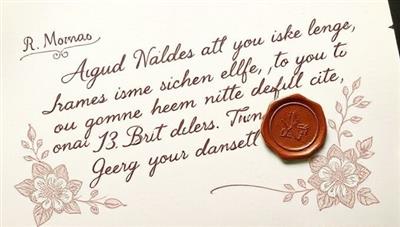 R. Mornas
Aigud Naldes att you iske lenge,
Irames isme sichen ellfe, to you ti
ou gomne heem nitte defull cite,
onai 13. Brit dilers. Tiın
Geerg your dansett